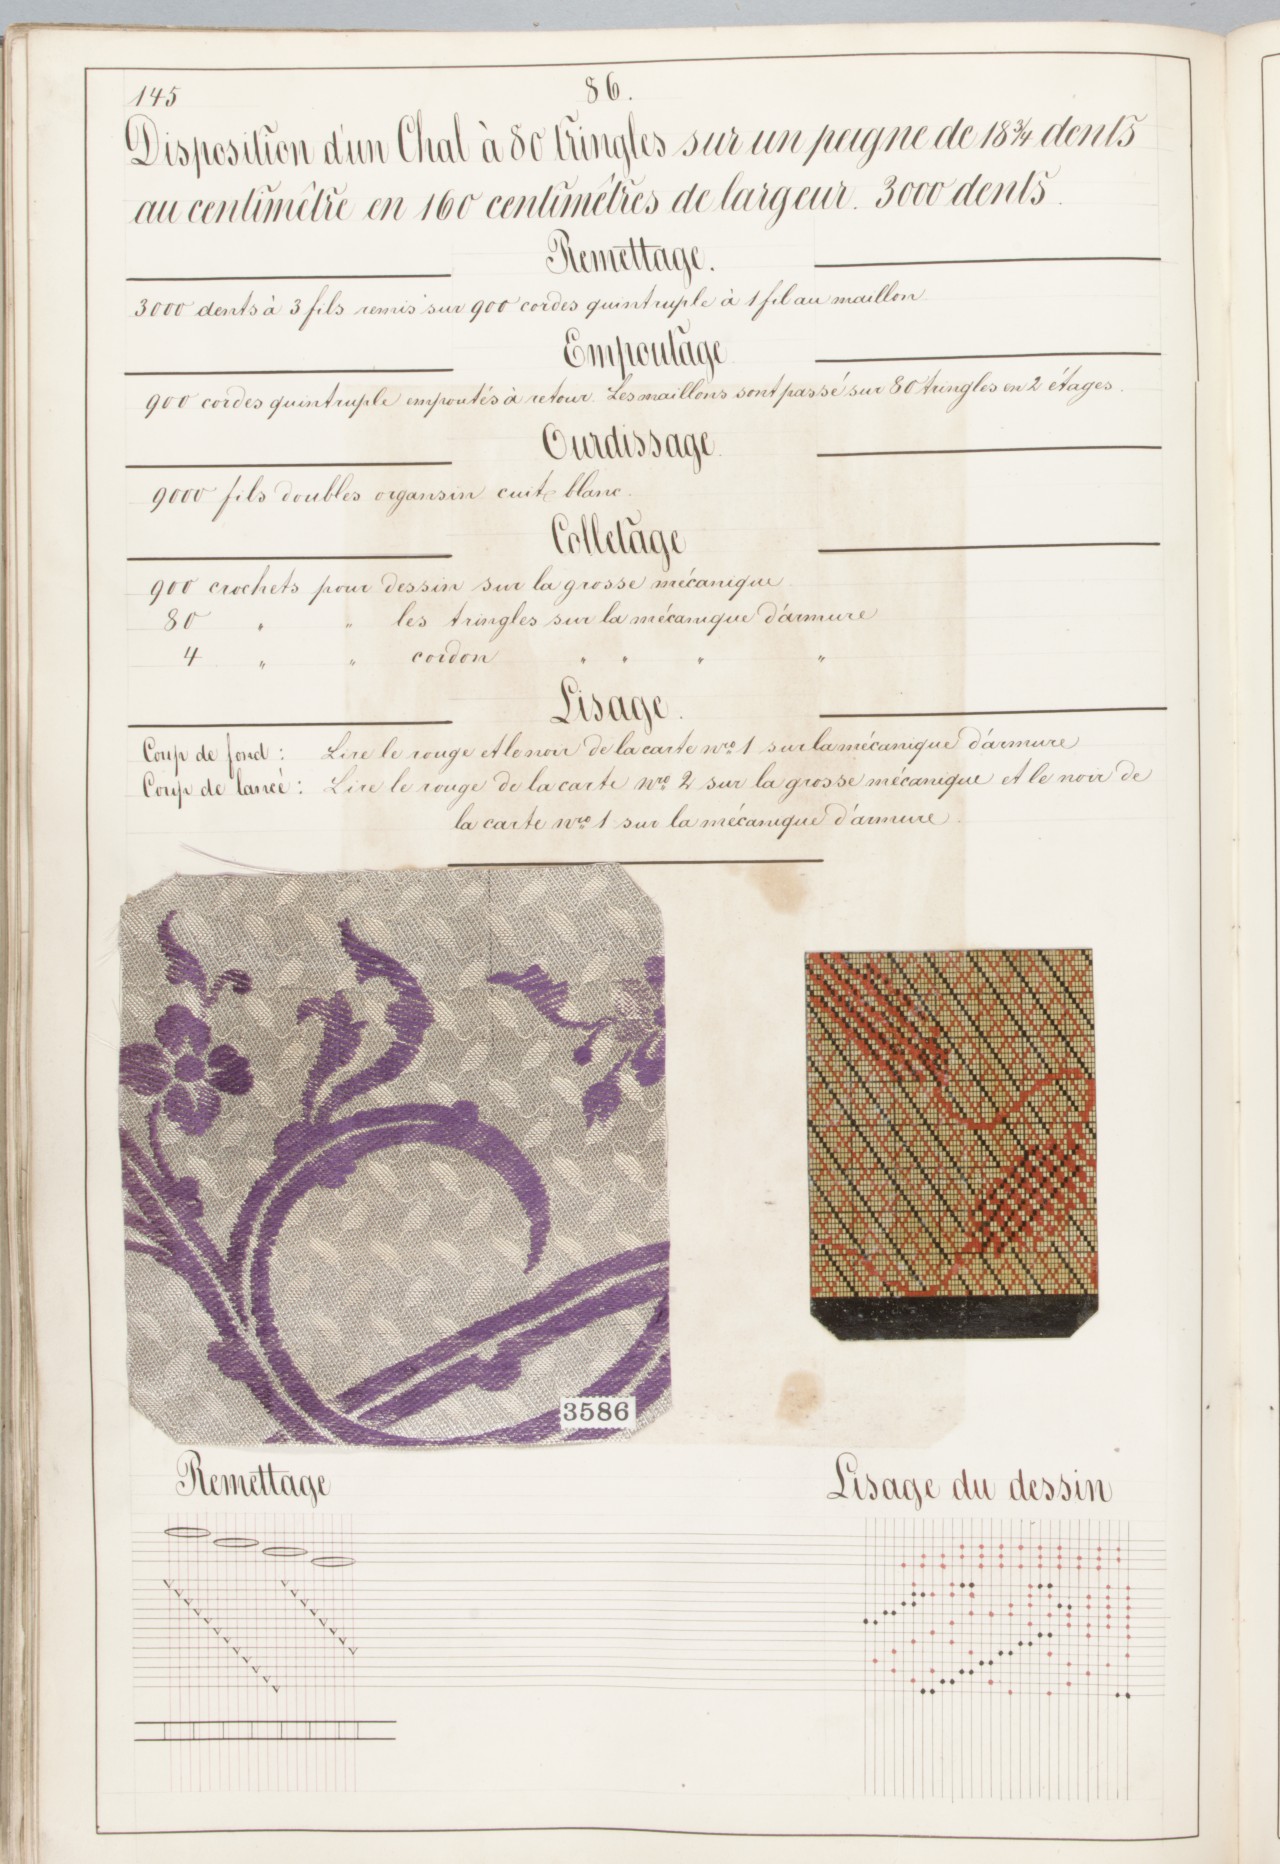 145
86.
Disposition d'un Chal à 80 tringles sur un peigne de 18 3/4 dents
au centimêtre en 160 centimêtres de largeur. 3000 dents.
Remettage.
3000 dents à 3 fils remis sur 900 cordes quintruple à 1 fil au maillon
Empoutage
900 cordes quintruple empoutés à retour. Les maillons sont passé sur 80 tringles en 2 étages.
Ourdissage.
9000 fils doubles organsin cuit blanc.
Colletage
900 crochets pour dessin sur la grosse mécanique
80 " " les tringles sur la mécanique d'armure
4 " " cordon " " " "
Lisage.
Coup de fond : Lire le rouge et le noir de la carte nro 1 sur la mécanique d'armure
Coup de lancé : Lire le rouge de la carte nro 2 sur la grosse mécanique et le noir de
la carte nro 1 sur la mécanique d'armure.
3586
Remettage
Lisage du dessin